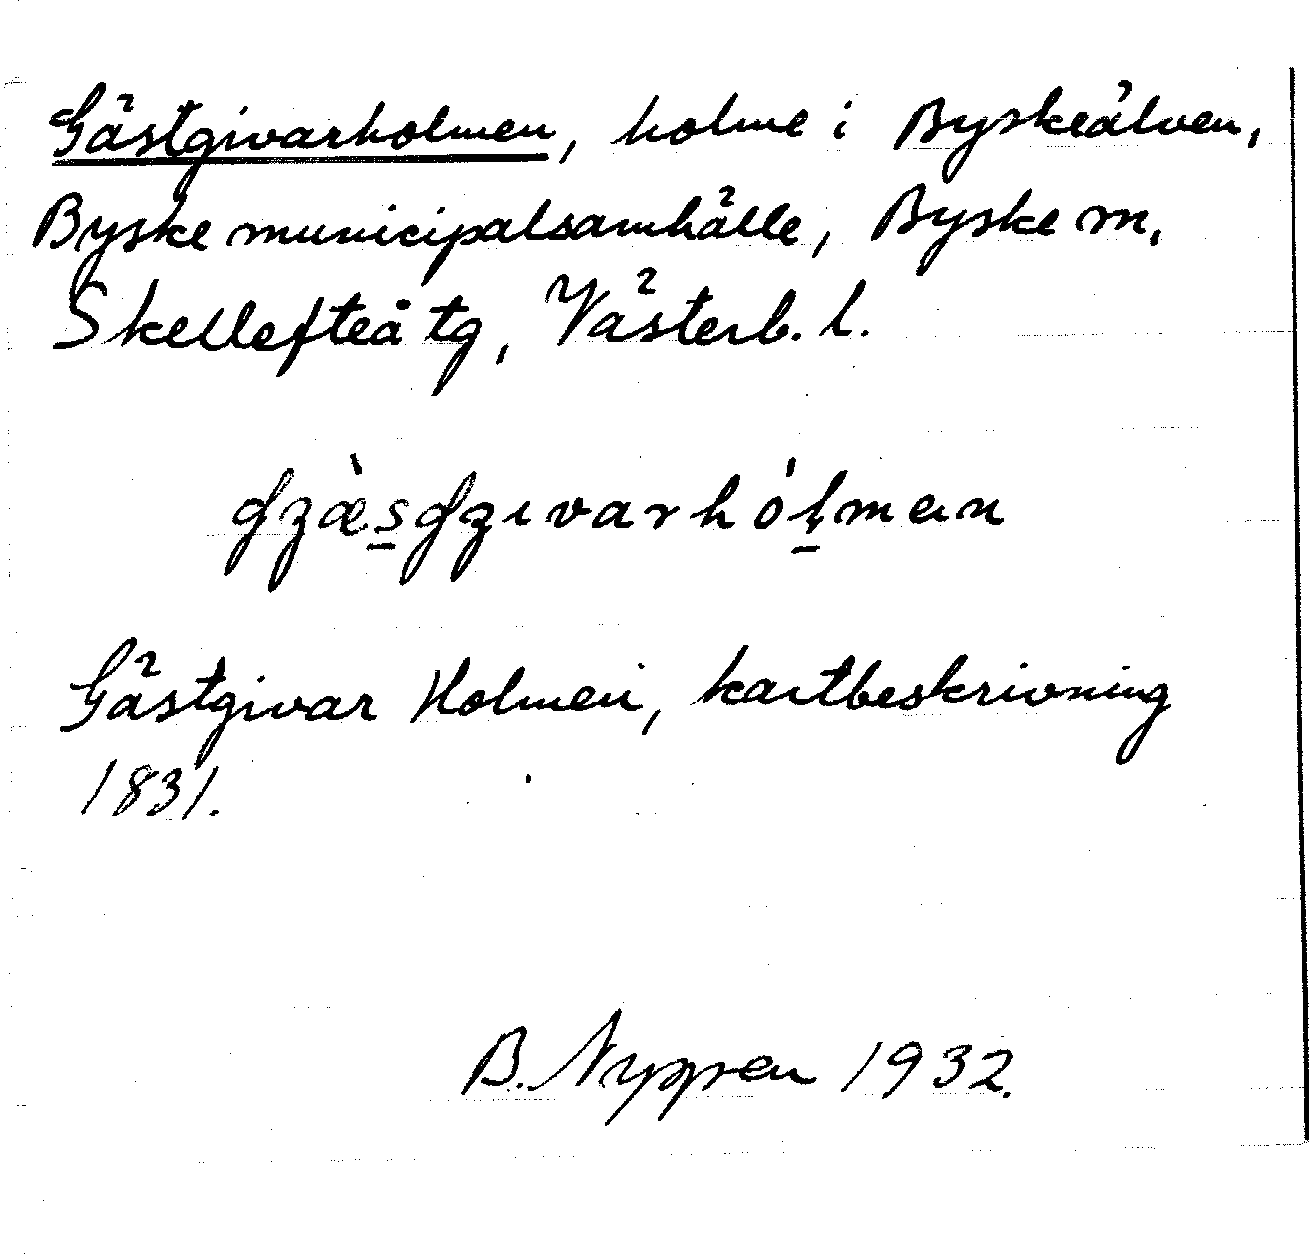 Gästgivarholmen, holme i Byskeälven,
Byske municipalsamhälle, Byske m,
Skellefteå tg, Västerb. l.
Gästgivar Holmen, kartbeskrivning
1831.
B. Nyppen 1932.